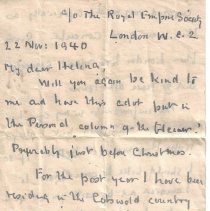 c/o The Royal Empire Society
London W.C.2
22 Nov: 1940
My dear Thelena,
Will you again be kind to
me and have this advt put in
the Personal column of the Gleaner?
Preferably just before Christmas.
For the past year I have been
residing in the Cotswold country